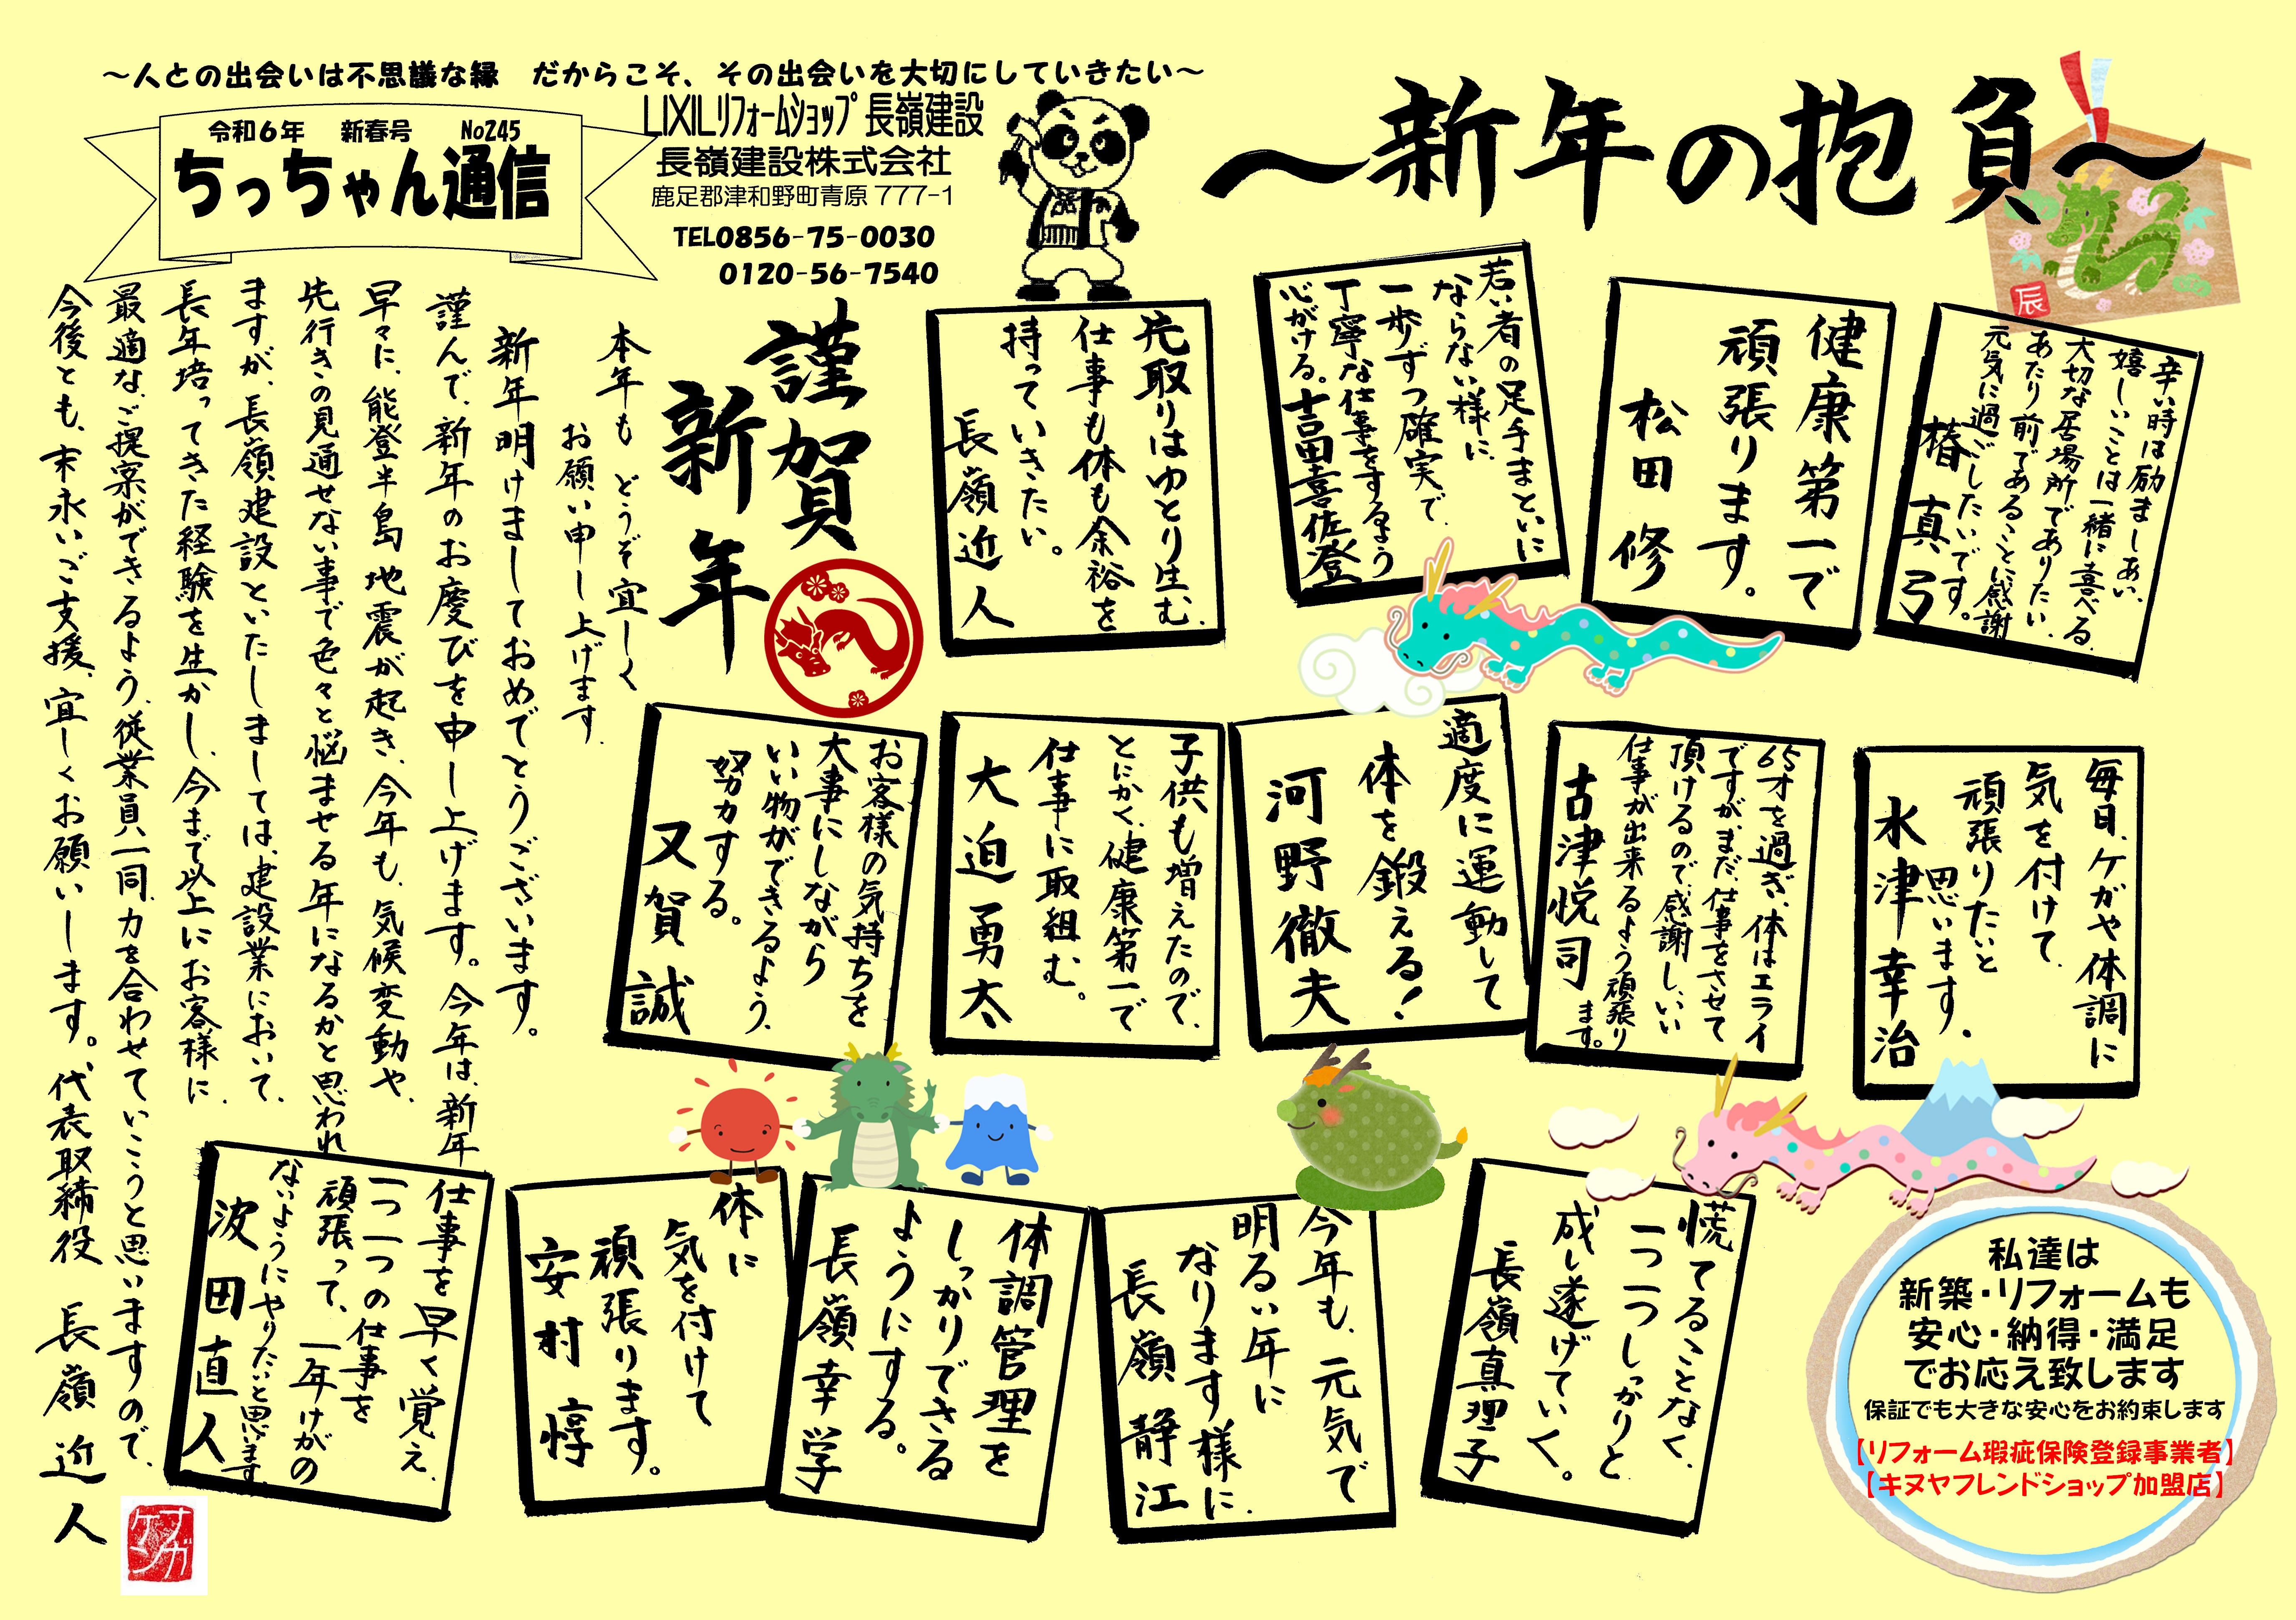 ～人との出会いは不思議な縁　だからこそ、その出会いを大切にしていきたい～
令和6年　新春号　No245
ちっちゃん通信
LIXILリフォームショップ 長嶺建設
長嶺建設株式会社
鹿足郡津和野町青原 777-1
TEL0856-75-0030
0120-56-7540
～新年の抱負～
辰
謹賀
新年
本年も どうぞ宜しく
お願い申し上げます.
新年明けましておめでとうございます。
謹んで、新年のお慶びを申し上げます。今年は、新年
早々に、能登半島地震が起き、今年も、気候変動や、
先行きの見通せない事で色々と悩ませる年になるかと思われ
ますが、長嶺建設といたしましては、建設業において、
長年培ってきた経験を生かし、今まで以上にお客様に、
最適な、ご提案ができるよう、従業員一同、力を合わせていこうと思いますので、
今後とも、末永いご支援、宜しくお願いします。代表取締役 長嶺近人
ナガ
ケン
辛い時は励ましあい、
嬉しいことは一緒に喜べる、
大切な居場所でありたい、
あたり前であることに感謝
元気に過ごしたいです。
椿 真弓
健康第一で
頑張ります。
松田 修
若い者の足手まといに
ならない様に、
一歩ずつ確実で、
丁寧な仕事をするよう
心がける。吉田喜佐登
先取りはゆとり生む、
仕事も体も余裕を
持っていきたい。
長嶺近人
毎日、ケガや体調に
気を付けて、
頑張りたいと
思います。
水津幸治
65才を過ぎ、体はエライ
ですが、まだ、仕事をさせて
頂けるので、感謝し、いい
仕事が出来るよう頑張り
ます。
古津悦司
適度に運動して
体を鍛える！
河野徹夫
子供も増えたので、
とにかく、健康第一で
仕事に取組む。
大迫勇太
お客様の気持ちを
大事にしながら
いい物ができるよう、
努力する。
又賀 誠
慌てることなく、
一つ一つしっかりと
成し遂げていく。
長嶺真理子
今年も、元気で
明るい年に
なります様に、
長嶺 静江
体調管理を
しっかりできる
ようにする。
長嶺幸学
体に
気を付けて
頑張ります。
安村 惇
仕事を早く覚え、
一つ一つの仕事を
頑張って、一年けがの
ないようにやりたいと思います
波田直人
私達は
新築・リフォームも
安心・納得・満足
でお応え致します
保証でも大きな安心をお約束します
【リフォーム瑕疵保険登録事業者】
【キヌヤフレンドショップ加盟店】